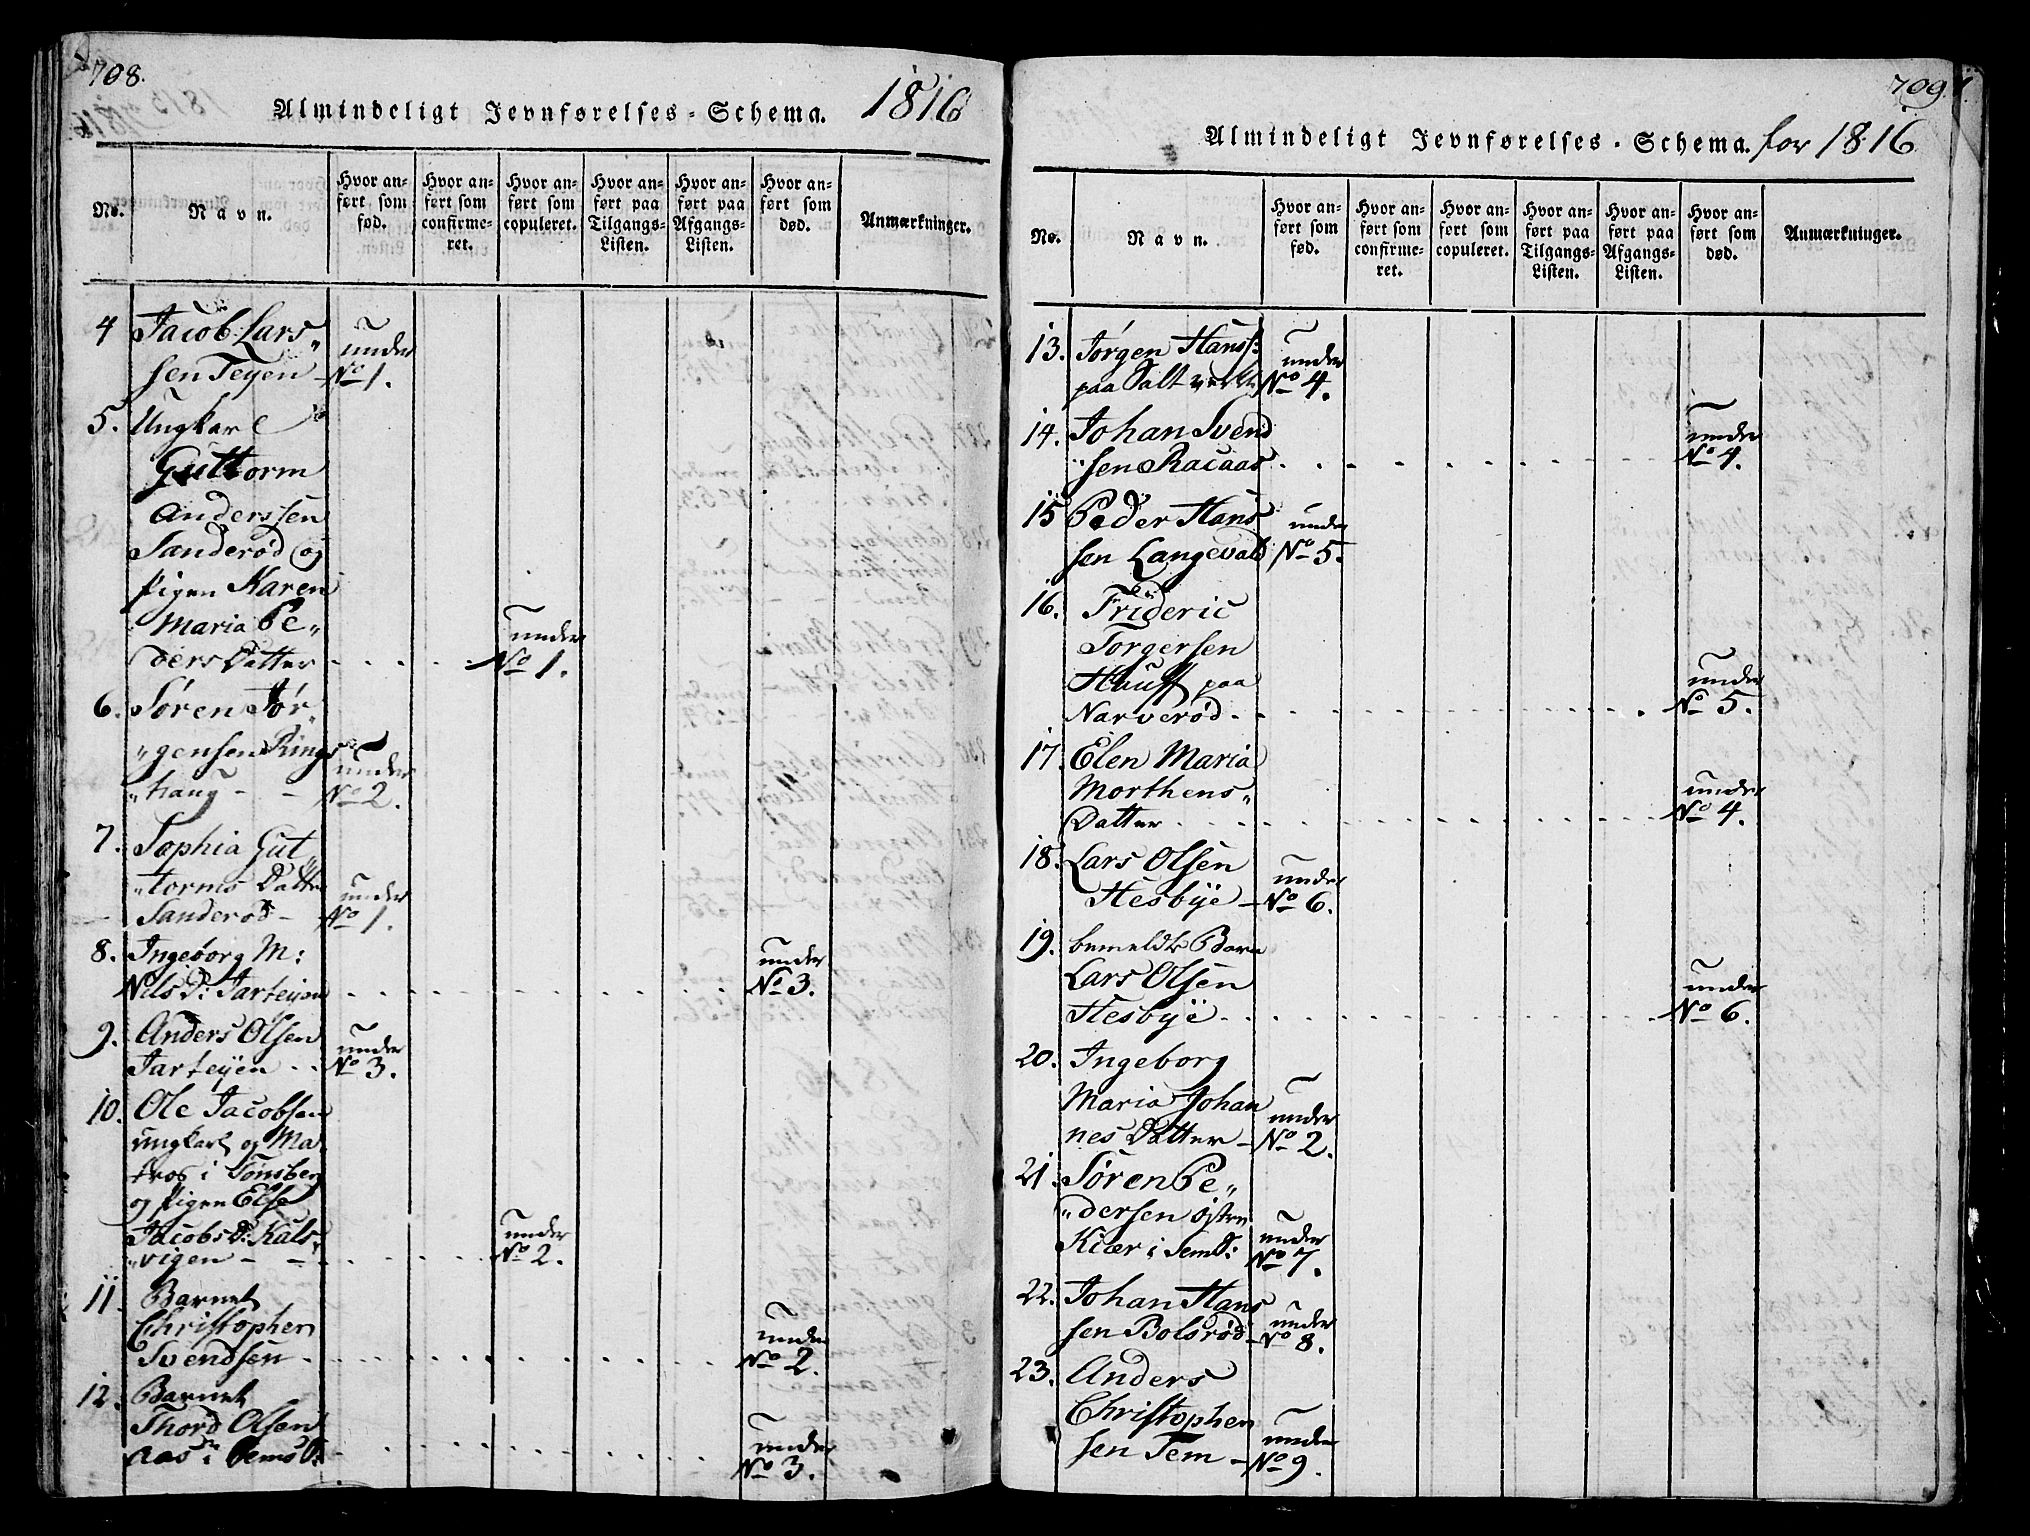 708.
Almindeligt Jevnførelses-Schema. 1816
No.
Navn.
Hvor an-
ført som
fød.
Hvor an-
ført som
confirme-
ret.
Hvor an-
ført som
copuleret.
Hvor an-
ført paa
Tilgangs-
Listen.
Hvor an-
ført paa
Afgangs-
Listen.
Hvor an-
ført som
død.
Anmærkninger.
4 Jacob Lars„ under
sen Teyen - No 1.
5. Ungkarl
Guttorm
Anderssen
Sanderød og
Pigen Karen
Maria Pe„ under
ders Datter . . . . No 1.
6. Søren Jør„
„gensen Rings„ under
„haug - - No 2.
7. Sophia Gut„
„torms Datter under
Sanderød - No 1.
8. Ingeborg M: under
Nils D: Jarteyen . . . . No 3.
9. Anders Olsen under
Jarteyen . . No 3.
10. Ole Jacobsen
ungkarl og Ma„
tros i Tønsberg
og Pigen Else
Jacobs D: Kals„ under
„vigen - - . . . No 2.
11. Barnet
Christopher under
Svendsen . . . . No 2.
12. Barnet
Thord Olsen under
Aas i Sems S: . . . . No 3.
709.
Almindeligt Jevnførelses-Schema. for 1816
No.
Navn.
Hvor an-
ført som
fød.
Hvor an-
ført som
confirme-
ret.
Hvor an-
ført som
copuleret.
Hvor an-
ført paa
Tilgangs-
Listen.
Hvor an-
ført paa
Afgangs-
Listen.
Hvor an-
ført som
død.
Anmærkninger.
13. Jørgen Hanss: under
paa Saltverket No 4.
14. Johan Svend under
„sen Racaas . . . . No 4.
15 Peder Hans under
sen Langevald No 5.
16. Frideric
Torgersen
Hauff paa under
Narverød . . . . No 5.
17. Elen Maria
Morthens„ under
Datter . . . . No 4.
18. Lars Olsen under
Hesbye - No 6.
19. bemeldte Barn
Lars Olsen under
Hesbye . . . . No 6.
20. Ingeborg
Maria Johan under
nes Datter - No 2.
21. Søren Pe„
„dersen østre under
Kiær i Sem S: No 7.
22. Johan Hans under
sen Bolsrød - No 8.
23. Anders
Christophen under
sen Tem - No 9.